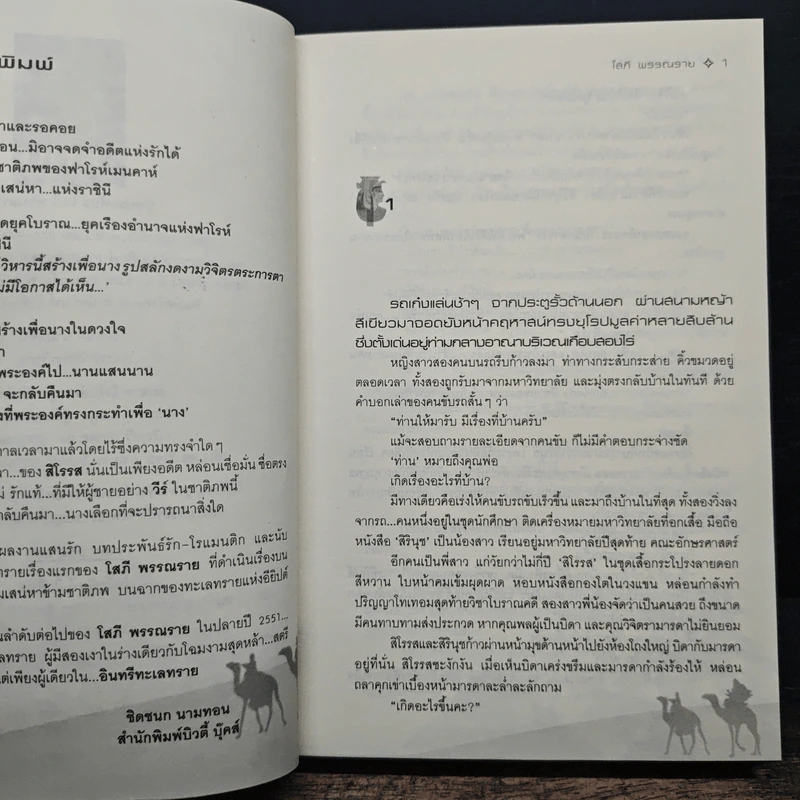 พิมพ์
าและรอคอย
อน...มิอาจจดจำอดีตแห่งรักได้
ชาติภพของฟาโรห์เมนคาห์
เสน่หา...แห่งราชินี
ดยุคโบราณ...ยุคเรืองอำนาจแห่งฟาโรห์
ินี
วิหารนี้สร้างเพื่อนาง รูปสลักงดงามวิจิตรตระการตา
ม่มีโอกาสได้เห็น...’
ร้างเพื่อนางในดวงใจ
า
พระองค์ไป...นานแสนนาน
จะกลับคืนมา
งที่พระองค์ทรงกระทำเพื่อ ‘นาง’
าลเวลามาแล้วโดยไร้ซึ่งความทรงจำใดๆ
า...ของ สิโรรส นั่นเป็นเพียงอดีต หล่อนเชื่อมั่น ซื่อตรง
ม่ รักแท้...ที่มีให้ผู้ชายอย่าง วีร์ ในชาติภพนี้
กลับคืนมา...นางเลือกที่จะปรารถนาสิ่งใด
ผลงานแสนรัก บทประพันธ์รัก-โรแมนติก และนับ
ทรายเรื่องแรกของ โสภี พรรณราย ที่ดำเนินเรื่องบน
มเสน่หาข้ามชาติภพ บนฉากของทะเลทรายแห่งอียิปต์
นลำดับต่อไปของ โสภี พรรณราย ในปลายปี 2551...
ลทราย ผู้มีสองเงาในร่างเดียวกับโฉมงามสุดหล้า...สตรี
ต่เพียงผู้เดียวใน...อินทรีทะเลทราย
ชิดชนก นามทอน
สำนักพิมพ์บิวตี้ บุ๊คส์
โสภี พรรณราย ✧ 1
1
รถเก๋งแล่นช้าๆ จากประตูรั้วด้านนอก ผ่านสนามหญ้า
สีเขียวมาจอดยังหน้าคฤหาสน์ทรงยุโรปมูลค่าหลายสิบล้าน
ซึ่งตั้งเด่นอยู่ท่ามกลางอาณาบริเวณเกือบสองไร่
หญิงสาวสองคนบนรถรีบก้าวลงมา ท่าทางกระสับกระส่าย คิ้วขมวดอยู่
ตลอดเวลา ทั้งสองถูกรับมาจากมหาวิทยาลัย และมุ่งตรงกลับบ้านในทันที ด้วย
คำบอกเล่าของคนขับรถสั้นๆ ว่า
“ท่านให้มารับ มีเรื่องที่บ้านครับ”
แม้จะสอบถามรายละเอียดจากคนขับ ก็ไม่มีคำตอบกระจ่างชัด
‘ท่าน’ หมายถึงคุณพ่อ
เกิดเรื่องอะไรที่บ้าน?
มีทางเดียวคือเร่งให้คนขับรถขับเร็วขึ้น และมาถึงบ้านในที่สุด ทั้งสองวิ่งลง
จากรถ...คนหนึ่งอยู่ในชุดนักศึกษา ติดเครื่องหมายมหาวิทยาลัยที่อกเสื้อ มือถือ
หนังสือ ‘สิรินุช’ เป็นน้องสาว เรียนอยู่มหาวิทยาลัยปีสุดท้าย คณะอักษรศาสตร์
อีกคนเป็นพี่สาว แก่วัยกว่าไม่กี่ปี ‘สิโรรส’ ในชุดเสื้อกระโปรงลายดอก
สีหวาน ใบหน้าคมเข้มผุดผาด หอบหนังสือกองโตในวงแขน หล่อนกำลังทำ
ปริญญาโทเทอมสุดท้ายวิชาโบราณคดี สองสาวพี่น้องจัดว่าเป็นคนสวย ถึงขนาด
มีคนทาบทามส่งประกวด หากคุณพลผู้เป็นบิดา และคุณวิจิตรามารดาไม่ยินยอม
สิโรรสและสิรินุชก้าวผ่านหน้ามุขด้านหน้าไปยังห้องโถงใหญ่ บิดากับมารดา
อยู่ที่นั่น สิโรรสชะงักงัน เมื่อเห็นบิดาเคร่งขรึมและมารดากำลังร้องไห้ หล่อน
ถลาคุกเข่าเบื้องหน้ามารดาละล่ำละลักถาม
“เกิดอะไรขึ้นคะ?”